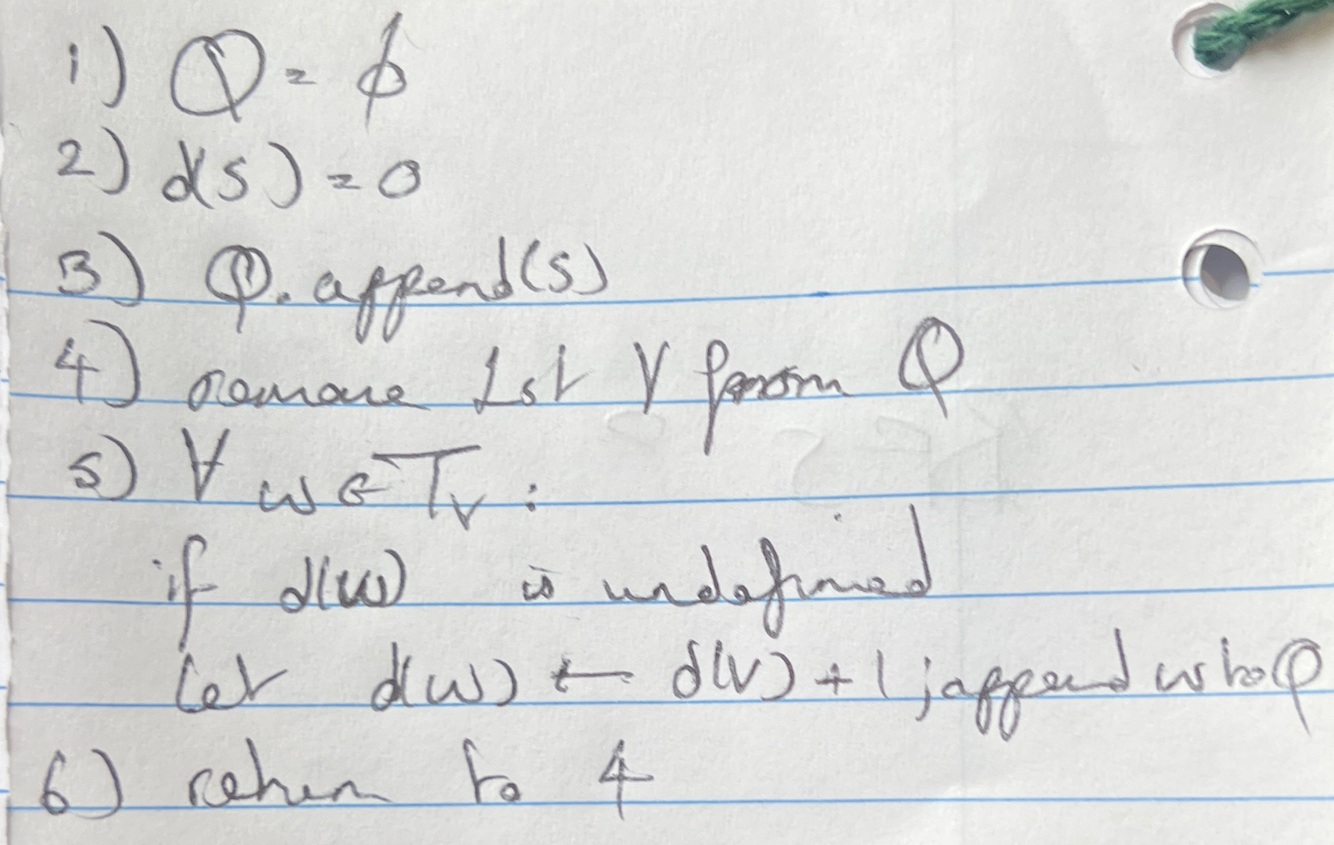 1) Q = ϕ
2) d(s) = 0
3) Q.append(s)
4) remove 1st V from Q
5) ∀ w ∈ Tv :
if d(w) is undefined
let d(w) ← d(v) + 1 ; append w to Q
6) return to 4